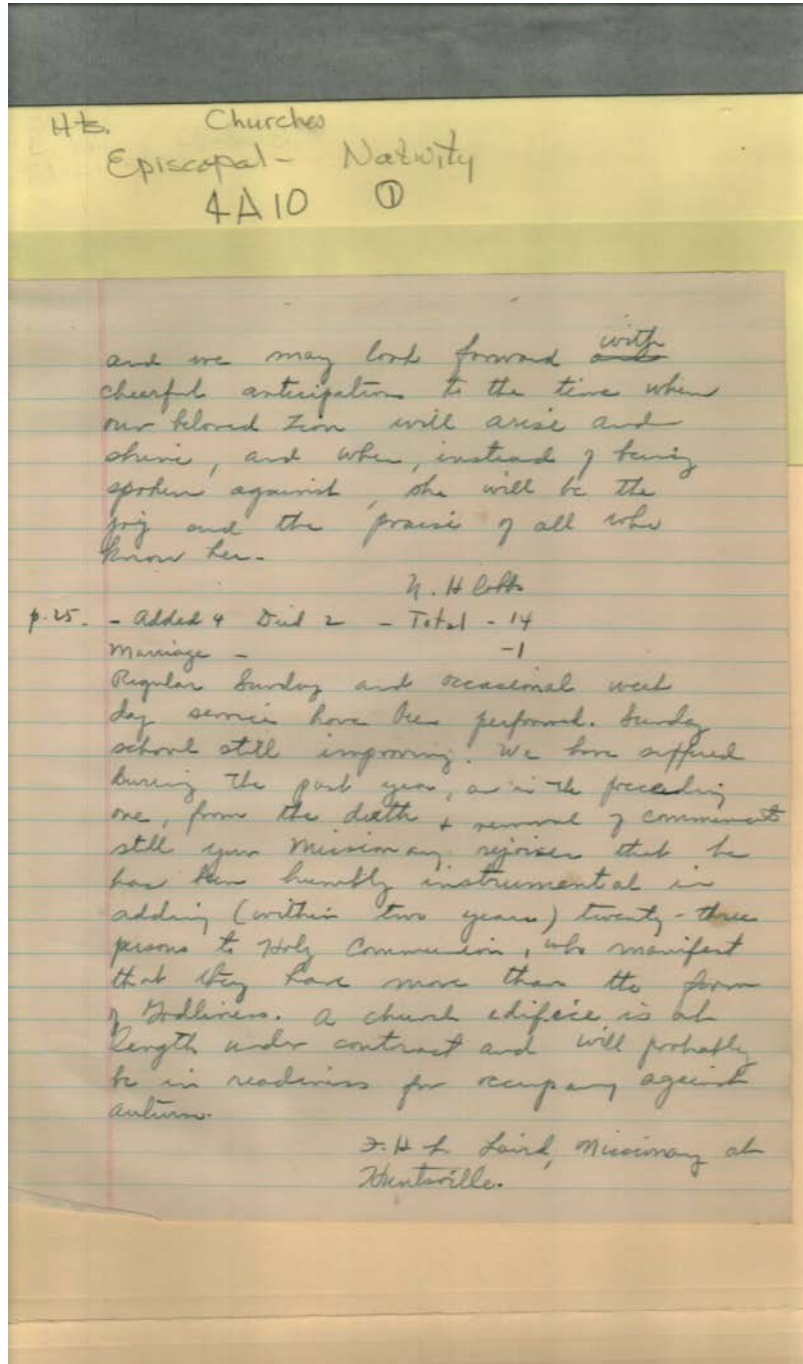 Hts. Churches
Episcopal - Nativity
4A10 ①
and we may look forward and with
cheerful anticipation to the time when
our beloved Zion will arise and
shine, and when, instead of being
spoken against, she will be the
joy and the praise of all who
know her.
N. H Cobbs
p. 25. - Added 4 Died 2 - Total - 14
Marriage - -1
Regular Sunday and occasional week
day services have been performed. Sunday
school still improving. We have suffered
During the past year, as in the preceding
one, from the death + removal of communicants
still your Missionary rejoices that he
has been humbly instrumental in
adding (within two years) twenty-three
persons to Holy Communion, who manifest
that they have more than the form
of Godliness. A church edifice is at
length under contract and will probably
be in readiness for occupany against
autumn.
F. H L Laird, Missionary at
Huntsville.